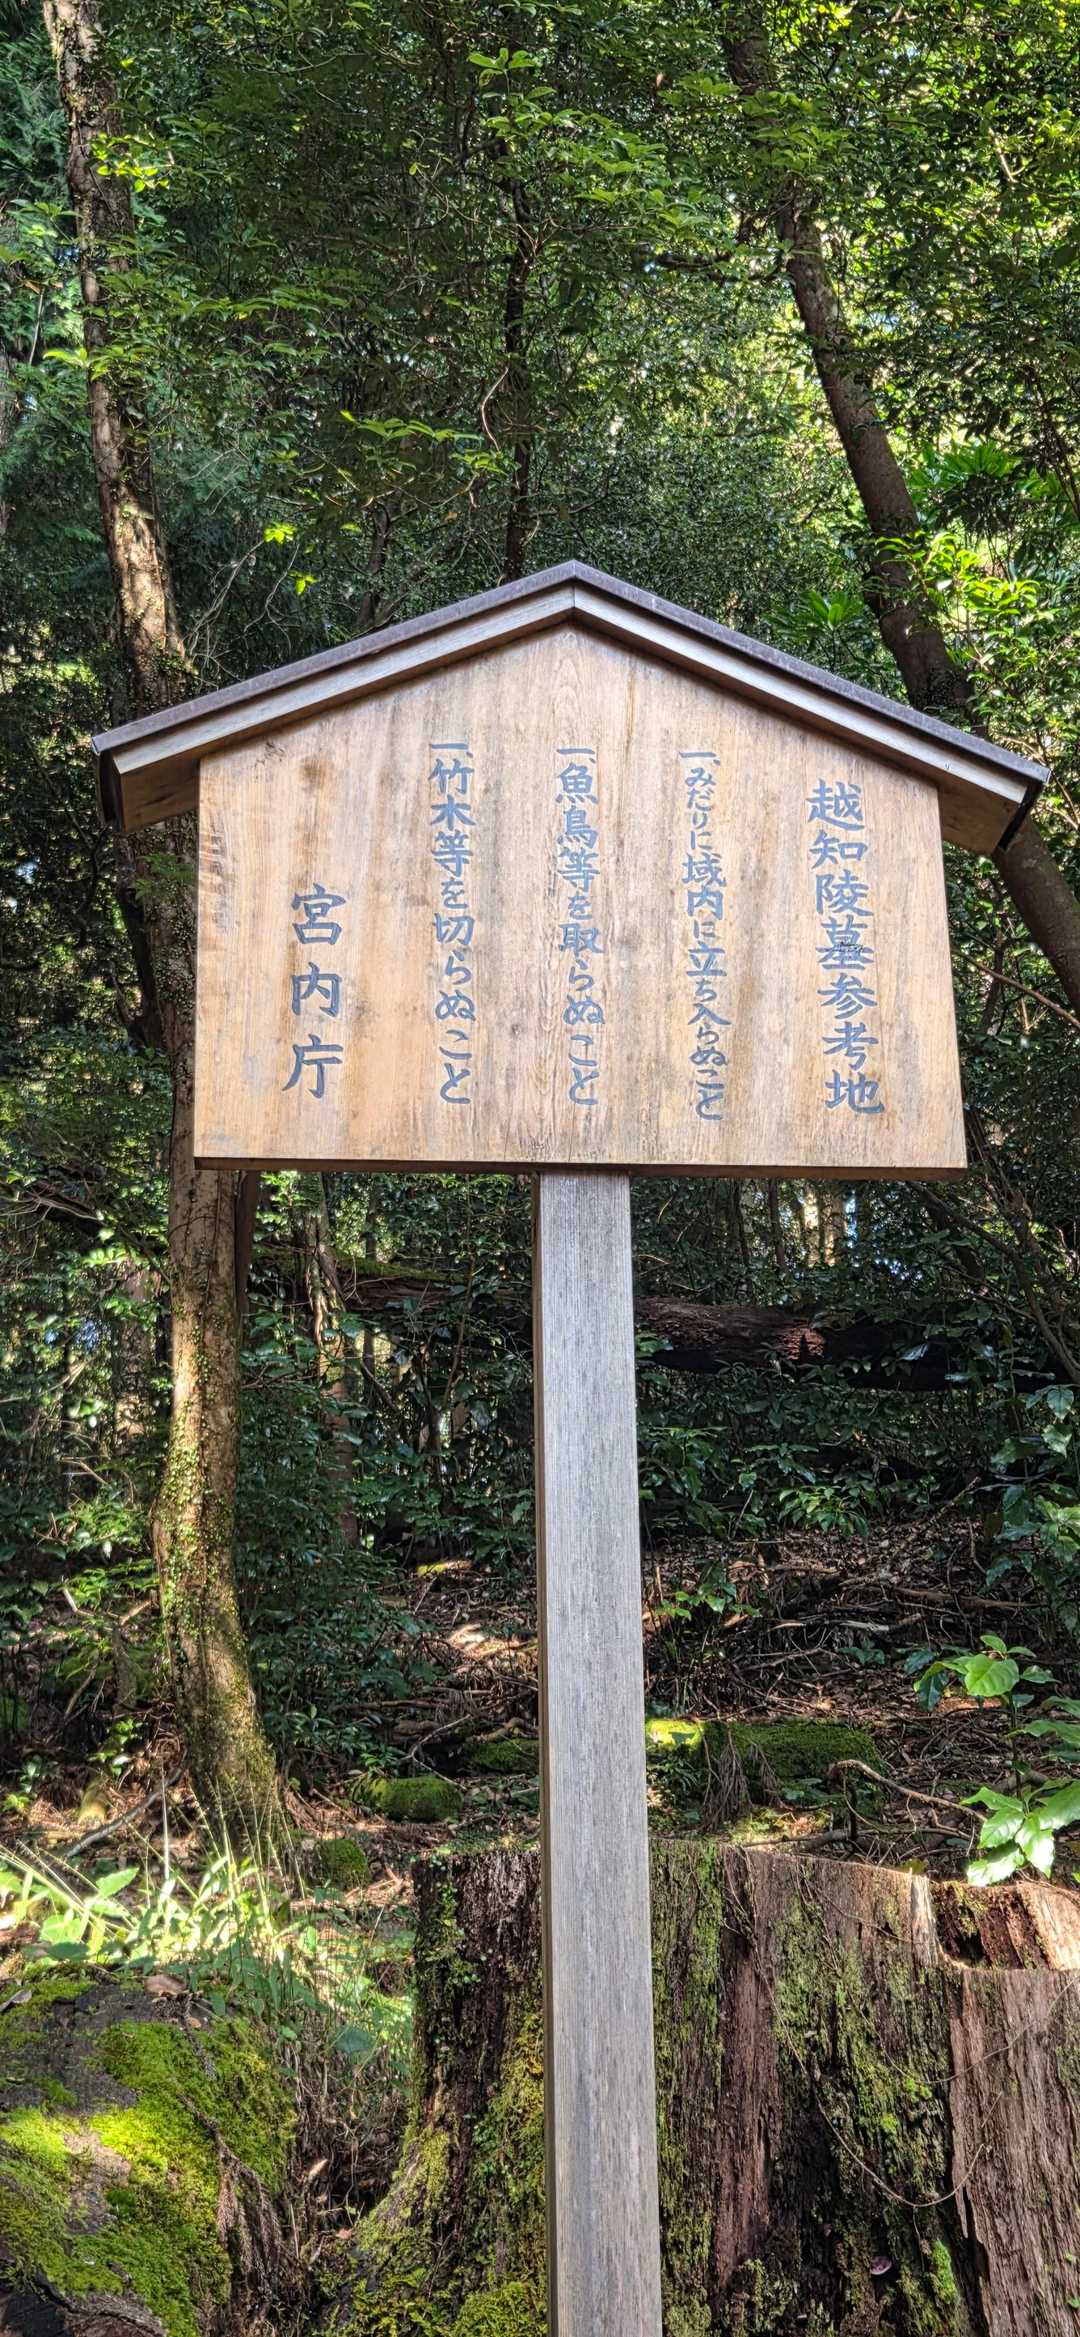 越知陵墓参考地
一、みだりに域内に立ち入らぬこと
一、魚鳥等を取らぬこと
一、竹木等を切らぬこと
宮内庁